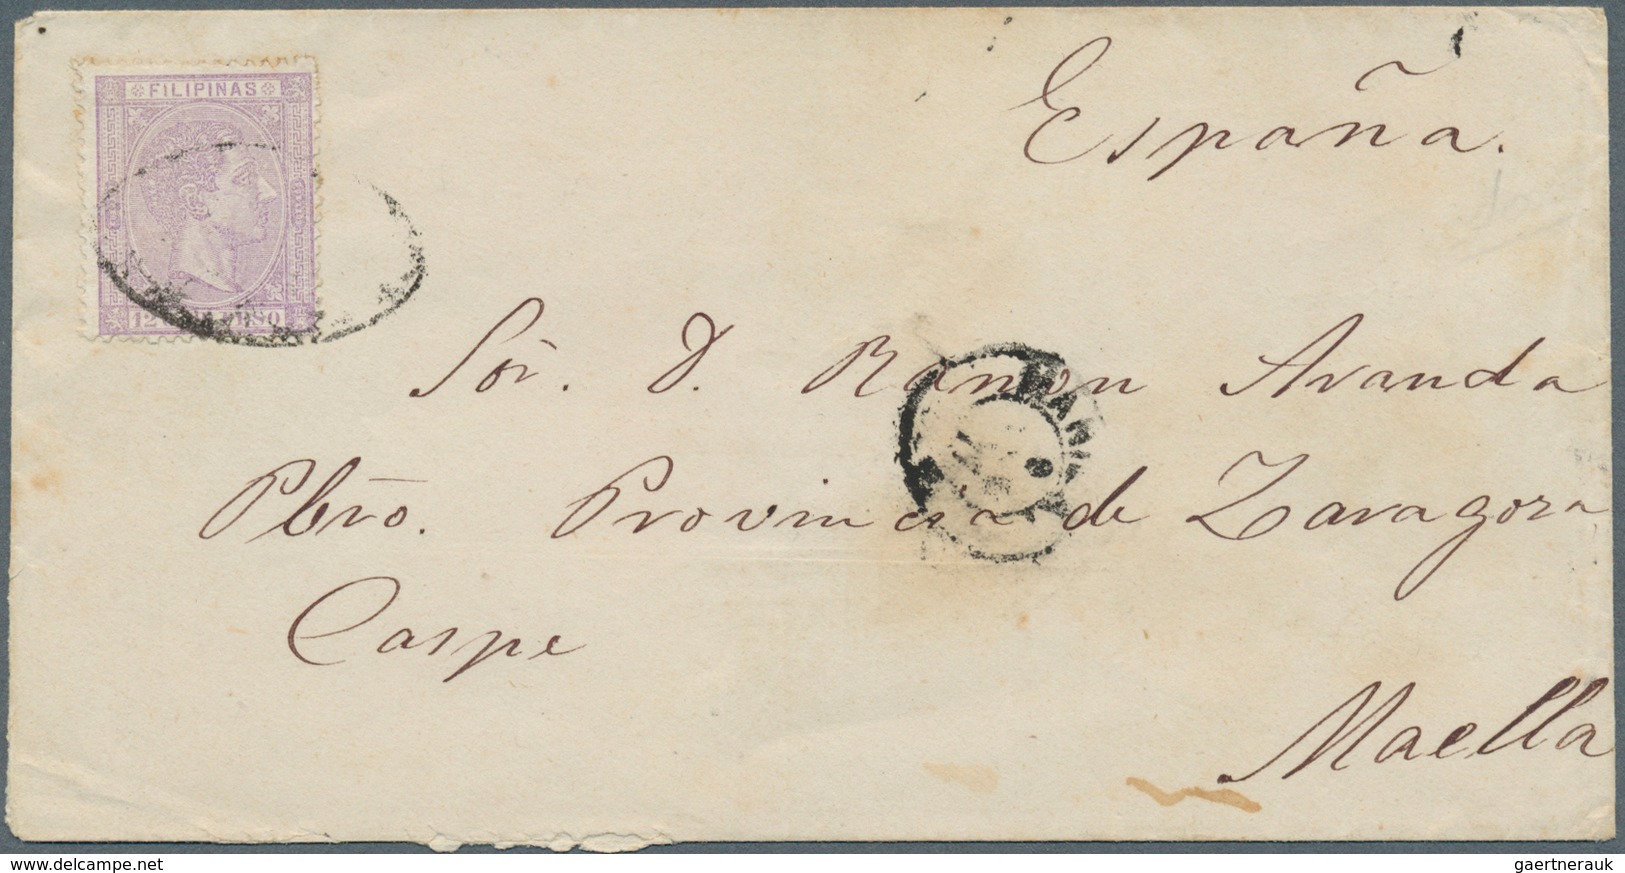 FILIPINAS
España.
Sör. D. Ramon Aranda
MANILA
Pbro. Provincia de Zaragoza
Caspe
Maella
www.delcampe.net
gaertnerauk